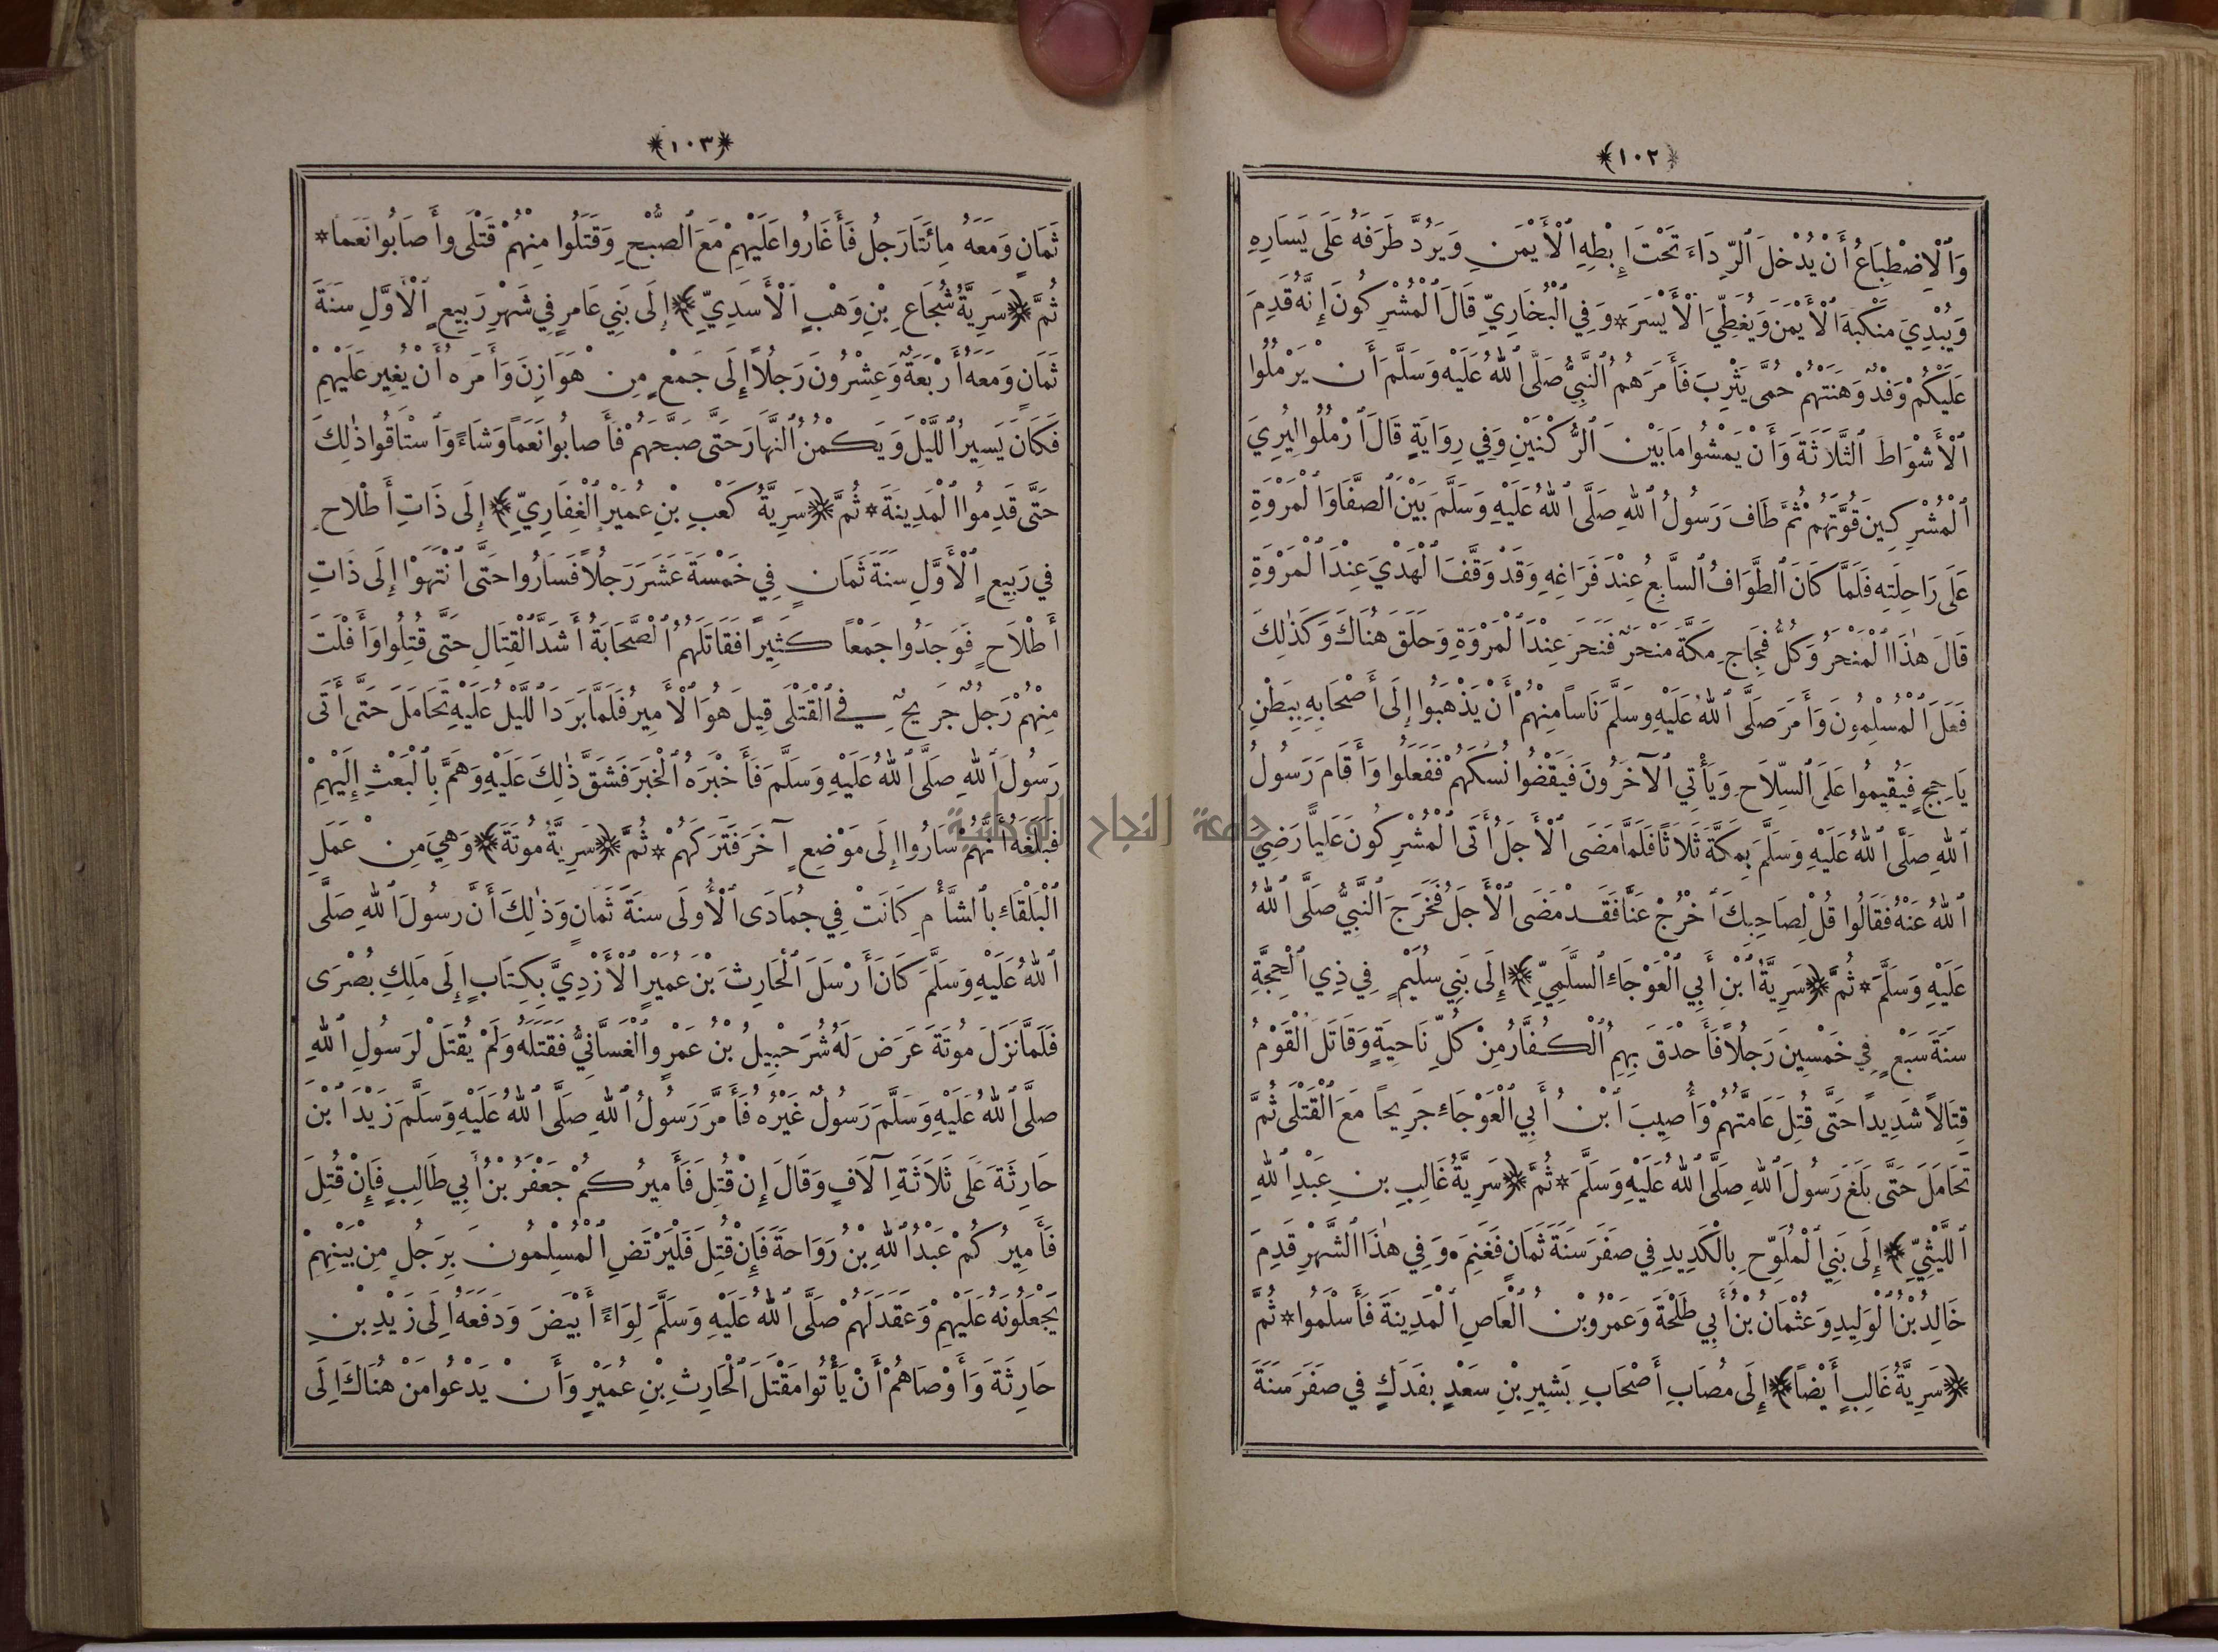 ﴿١٠٢﴾
وَٱلْاِضْطِبَاعُ أَنْ يُدْخِلَ ٱلرِّدَاءَ تَحْتَ إِبْطِهِ ٱلْأَيْمَنِ وَيَرُدَّ طَرَفَهُ عَلَى يَسَارِهِ
وَيُبْدِيَ مَنْكِبَهُ ٱلْأَيْمَنَ وَيُغَطِّيَ ٱلْأَيْسَرَ * وَفِي ٱلْبُخَارِيِّ قَالَ ٱلْمُشْرِكُونَ إِنَّهُ قَدِمَ
عَلَيْكُمْ وَفْدٌ وَهَنَتْهُمْ حُمَّى يَثْرِبَ فَأَمَرَهُمُ ٱلنَّبِيُّ صَلَّى ٱللهُ عَلَيْهِ وَسَلَّمَ أَنْ يَرْمُلُوا
ٱلْأَشْوَاطَ ٱلثَّلَاثَةَ وَأَنْ يَمْشُوا مَا بَيْنَ ٱلرُّكْنَيْنِ وَفِي رِوَايَةٍ قَالَ ٱرْمُلُوا لِيُرِيَ
ٱلْمُشْرِكِينَ قُوَّتَهُمْ ثُمَّ طَافَ رَسُولُ ٱللهِ صَلَّى ٱللهُ عَلَيْهِ وَسَلَّمَ بَيْنَ ٱلصَّفَا وَٱلْمَرْوَةِ
عَلَى رَاحِلَتِهِ فَلَمَّا كَانَ ٱلطَّوَافُ ٱلسَّابِعُ عِنْدَ فَرَاغِهِ وَقَدْ وَقَفَ ٱلْهَدْيَ عِنْدَ ٱلْمَرْوَةِ
قَالَ هٰذَا ٱلْمَنْحَرُ وَكُلُّ فِجَاجِ مَكَّةَ مَنْحَرٌ فَنَحَرَ عِنْدَ ٱلْمَرْوَةِ وَحَلَقَ هُنَاكَ وَكَذٰلِكَ
فَعَلَ ٱلْمُسْلِمُونَ وَأَمَرَ صَلَّى ٱللهُ عَلَيْهِ وَسَلَّمَ نَاسًا مِنْهُمْ أَنْ يَذْهَبُوا إِلَى أَصْحَابِهِ بِبَطْنِ
يَاجِجٍ فَيُقِيمُوا عَلَى ٱلسِّلَاحِ وَيَأْتِيَ ٱلْآخَرُونَ فَيَقْضُوا نُسُكَهُمْ فَفَعَلُوا وَأَقَامَ رَسُولُ
ٱللهِ صَلَّى ٱللهُ عَلَيْهِ وَسَلَّمَ بِمَكَّةَ ثَلَاثًا فَلَمَّا مَضَى ٱلْأَجَلُ أَتَى ٱلْمُشْرِكُونَ عَلِيًّا رَضِيَ
ٱللهُ عَنْهُ فَقَالُوا قُلْ لِصَاحِبِكَ ٱخْرُجْ عَنَّا فَقَدْ مَضَى ٱلْأَجَلُ فَخَرَجَ ٱلنَّبِيُّ صَلَّى ٱللهُ
عَلَيْهِ وَسَلَّمَ * ثُمَّ ﴿سَرِيَّةُ ٱبْنِ أَبِي ٱلْعَوْجَاءِ ٱلسَّلَمِيِّ﴾ إِلَى بَنِي سُلَيْمٍ فِي ذِي ٱلْحِجَّةِ
سَنَةَ سَبْعٍ فِي خَمْسِينَ رَجُلًا فَأَحْدَقَ بِهِمُ ٱلْكُفَّارُ مِنْ كُلِّ نَاحِيَةٍ وَقَاتَلَ ٱلْقَوْمُ
قِتَالًا شَدِيدًا حَتَّى قُتِلَ عَامَّتُهُمْ وَأُصِيبَ ٱبْنُ أَبِي ٱلْعَوْجَاءِ جَرِيحًا مَعَ ٱلْقَتْلَى ثُمَّ
تَحَامَلَ حَتَّى بَلَغَ رَسُولَ ٱللهِ صَلَّى ٱللهُ عَلَيْهِ وَسَلَّمَ * ثُمَّ ﴿سَرِيَّةُ غَالِبِ بنِ عَبْدِ ٱللهِ
ٱللَّيْثِيِّ﴾ إِلَى بَنِي ٱلْمُلَوِّحِ بِالْكَدِيدِ فِي صَفَرَ سَنَةَ ثَمَانٍ فَغَنِمَ * وَفِي هٰذَا ٱلشَّهْرِ قَدِمَ
خَالِدُ بْنُ ٱلْوَلِيدِ وَعُثْمَانُ بْنُ أَبِي طَلْحَةَ وَعَمْرُو بْنُ ٱلْعَاصِ ٱلْمَدِينَةَ فَأَسْلَمُوا * ثُمَّ
﴿سَرِيَّةُ غَالِبٍ أَيْضًا﴾ إِلَى مُصَابِ أَصْحَابِ بَشِيرِ بْنِ سَعْدٍ بِفَدَكٍ فِي صَفَرَ سَنَةَ
﴿١٠٣﴾
ثَمَانٍ وَمَعَهُ مِائَتَا رَجُلٍ فَأَغَارُوا عَلَيْهِمْ مَعَ ٱلصُّبْحِ وَقَتَلُوا مِنْهُمْ قَتْلَى وَأَصَابُوا نَعَمًا *
ثُمَّ ﴿سَرِيَّةُ شُجَاعِ بْنِ وَهْبٍ ٱلْأَسَدِيِّ﴾ إِلَى بَنِي عَامِرٍ فِي شَهْرِ رَبِيعٍ ٱلْأَوَّلِ سَنَةَ
ثَمَانٍ وَمَعَهُ أَرْبَعَةٌ وَعِشْرُونَ رَجُلًا إِلَى جَمْعٍ مِنْ هَوَازِنَ وَأَمَرَهُ أَنْ يُغِيرَ عَلَيْهِمْ
فَكَانَ يَسِيرُ ٱللَّيْلَ وَيَكْمُنُ ٱلنَّهَارَ حَتَّى صَبَّحَهُمْ فَأَصَابُوا نَعَمًا وَشَاءً وَٱسْتَاقُوا ذٰلِكَ
حَتَّى قَدِمُوا ٱلْمَدِينَةَ * ثُمَّ ﴿سَرِيَّةُ كَعْبِ بْنِ عُمَيْرٍ ٱلْغِفَارِيِّ﴾ إِلَى ذَاتِ أَطْلَاحٍ
فِي رَبِيعٍ ٱلْأَوَّلِ سَنَةَ ثَمَانٍ فِي خَمْسَةَ عَشَرَ رَجُلًا فَسَارُوا حَتَّى ٱنْتَهَوْا إِلَى ذَاتِ
أَطْلَاحٍ فَوَجَدُوا جَمْعًا كَثِيرًا فَقَاتَلَهُمُ ٱلصَّحَابَةُ أَشَدَّ ٱلْقِتَالِ حَتَّى قُتِلُوا وَأَفْلَتَ
مِنْهُمْ رَجُلٌ جَرِيحٌ فِي ٱلْقَتْلَى قِيلَ هُوَ ٱلْأَمِيرُ فَلَمَّا بَرَدَ ٱللَّيْلُ عَلَيْهِ تَحَامَلَ حَتَّى أَتَى
رَسُولَ ٱللهِ صَلَّى ٱللهُ عَلَيْهِ وَسَلَّمَ فَأَخْبَرَهُ ٱلْخَبَرَ فَشَقَّ ذٰلِكَ عَلَيْهِ وَهَمَّ بِٱلْبَعْثِ إِلَيْهِمْ
فَبَلَغَهُ أَنَّهُمْ سَارُوا إِلَى مَوْضِعٍ آخَرَ فَتَرَكَهُمْ * ثُمَّ ﴿سَرِيَّةُ مُوتَةَ﴾ وَهِيَ مِنْ عَمَلِ
ٱلْبَلْقَاءِ بِٱلشَّأْمِ كَانَتْ فِي جُمَادَى ٱلْأُولَى سَنَةَ ثَمَانٍ وَذٰلِكَ أَنَّ رَسُولَ ٱللهِ صَلَّى
ٱللهُ عَلَيْهِ وَسَلَّمَ كَانَ أَرْسَلَ ٱلْحَارِثَ بْنَ عُمَيْرٍ ٱلْأَزْدِيَّ بِكِتَابٍ إِلَى مَلِكِ بُصْرَى
فَلَمَّا نَزَلَ مُوتَةَ عَرَضَ لَهُ شُرَحْبِيلُ بْنُ عَمْرٍو ٱلْغَسَّانِيُّ فَقَتَلَهُ وَلَمْ يُقْتَلْ لِرَسُولِ ٱللهِ
صَلَّى ٱللهُ عَلَيْهِ وَسَلَّمَ رَسُولٌ غَيْرُهُ فَأَمَّرَ رَسُولُ ٱللهِ صَلَّى ٱللهُ عَلَيْهِ وَسَلَّمَ زَيْدَ ٱبْنَ
حَارِثَةَ عَلَى ثَلَاثَةِ آلَافٍ وَقَالَ إِنْ قُتِلَ فَأَمِيرُكُمْ جَعْفَرُ بْنُ أَبِي طَالِبٍ فَإِنْ قُتِلَ
فَأَمِيرُكُمْ عَبْدُ ٱللهِ بْنُ رَوَاحَةَ فَإِنْ قُتِلَ فَلْيَرْتَضِ ٱلْمُسْلِمُونَ بِرَجُلٍ مِنْ بَيْنِهِمْ
يَجْعَلُونَهُ عَلَيْهِمْ وَعَقَدَ لَهُمْ صَلَّى ٱللهُ عَلَيْهِ وَسَلَّمَ لِوَاءً أَبْيَضَ وَدَفَعَهُ إِلَى زَيْدِ بْنِ
حَارِثَةَ وَأَوْصَاهُمْ أَنْ يَأْتُوا مَقْتَلَ ٱلْحَارِثِ بْنِ عُمَيْرٍ وَأَنْ يَدْعُوا مَنْ هُنَاكَ إِلَى
جامعة النجاح الوطنية